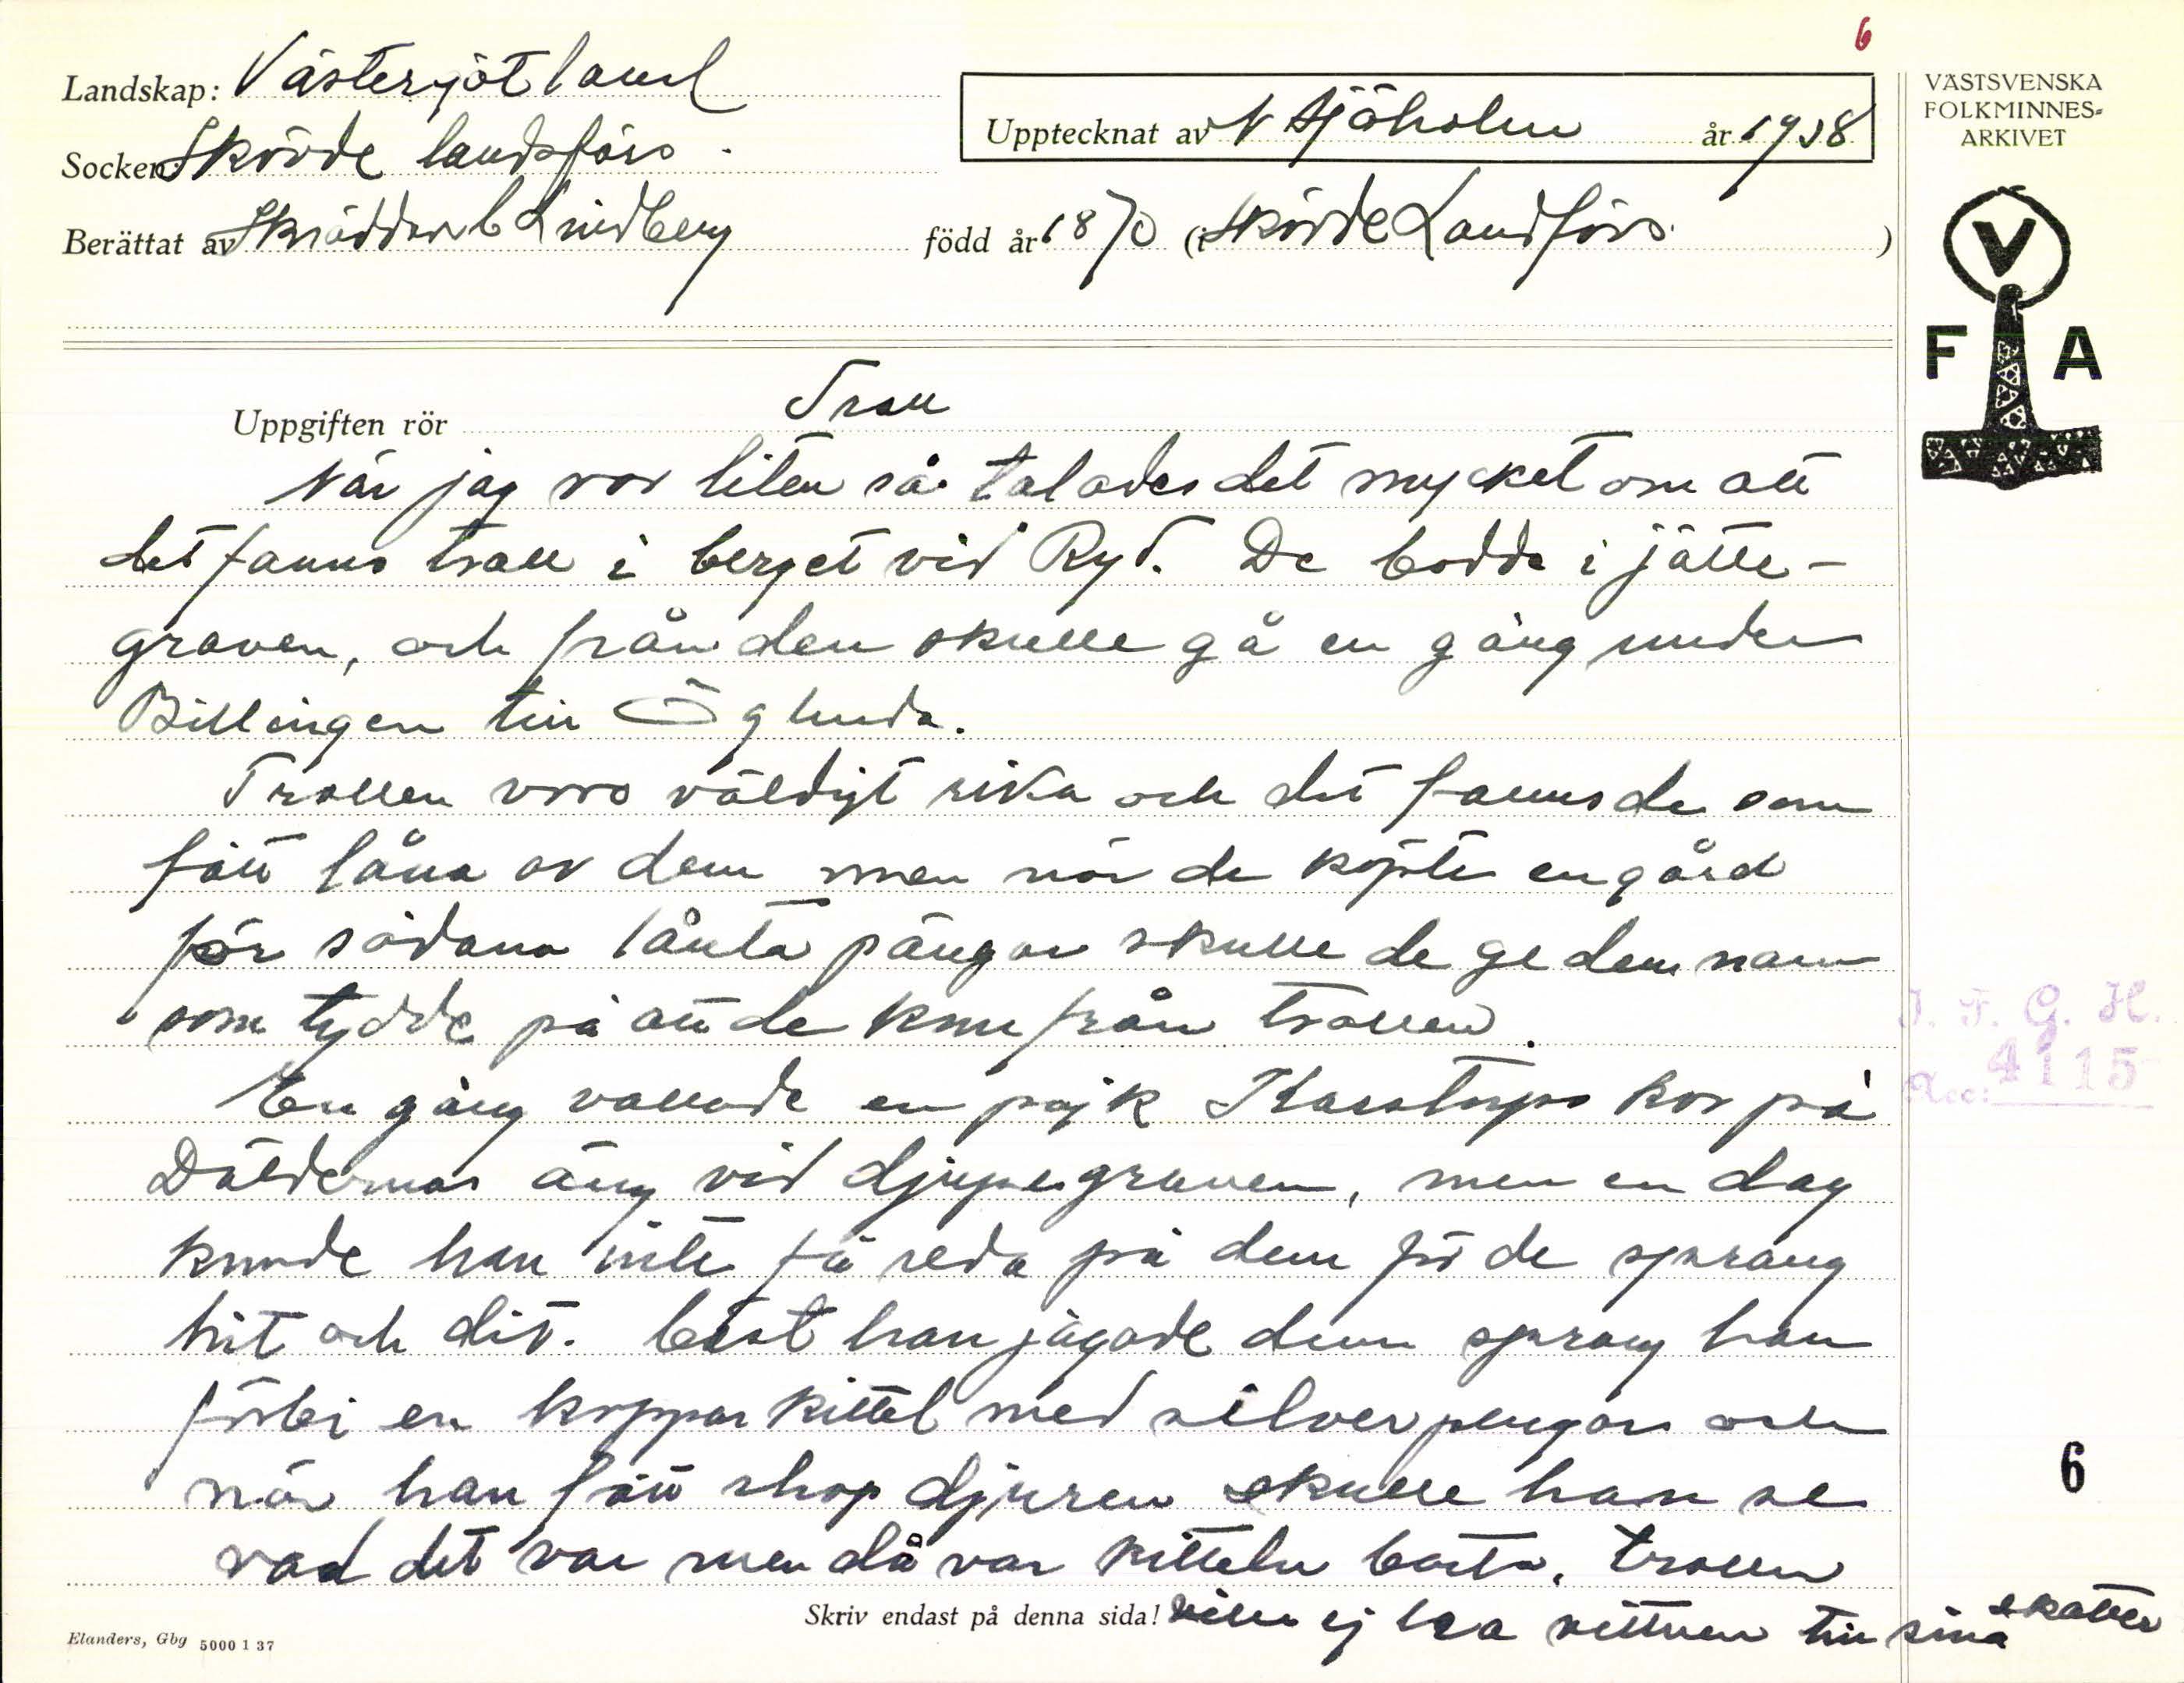 6
Landskap: Västergötland
Upptecknat av N Sjöholm år 1938
VÄSTSVENSKA
FOLKMINNES-
ARKIVET
Socken: Skövde landsförs.
Berättat av Skräddare C Lindberg född år 1870 (i Skövde Landförs.)
V
F A
Uppgiften rör Troll
När jag var liten så talades det mycket om att
det fanns troll i berget vid Ryd. De bodde i jätte-
graven, och från den skulle gå en gång under
Billingen till Öglunda.
Trollen voro väldigt rika och det fanns de som
fått låna av dem men när de köpte en gård
för sådana lånta pängar skulle de ge dem namn
som tydde på att de kom från trollen.
En gång vallade en pojk Karstorps kor på
Däldernas äng vid djupegraven, men en dag
kunde han inte få reda på dem för de sprang
hit och dit. Bäst han jagade dem sprang han
förbi en kopparkittel med silverpengar och
när han fått ihop djuren skulle han se
vad det var men då var kitteln borta. Trollen
Skriv endast på denna sida! ville ej ha vittnen till sina skatter
J. F. G. H.
Acc: 4115
6
Elanders, Gbg 5000 1 37